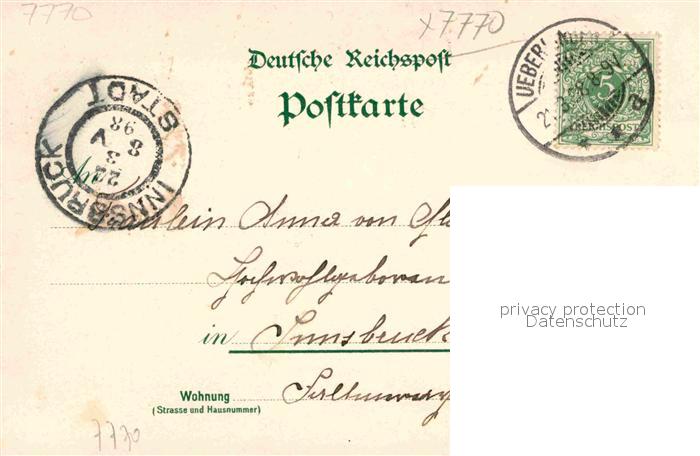 7770
x7770
Deutsche Reichspost
Postkarte
UEBERL
21
5
REICHSPOST
INNSBRUCK
STADT
22
3
8 V
98
Fräulein Anna von
Hochwohlgeboren
in Innsbruck
Wohnung
(Strasse und Hausnummer)
privacy protection
Datenschutz
7770